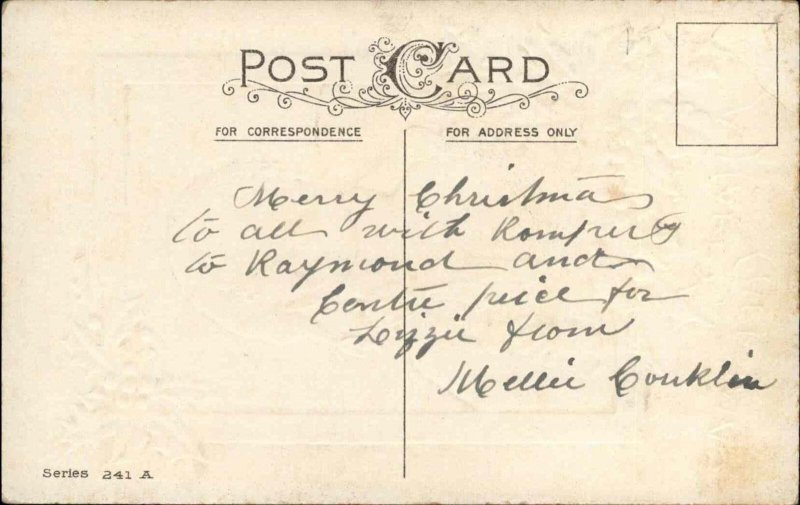 POST CARD
FOR CORRESPONDENCE
FOR ADDRESS ONLY
Merry Christmas
to all with Rompers
to Raymond and
Centre piece for
Lizzie from
Mellie Conklin
Series 241 A